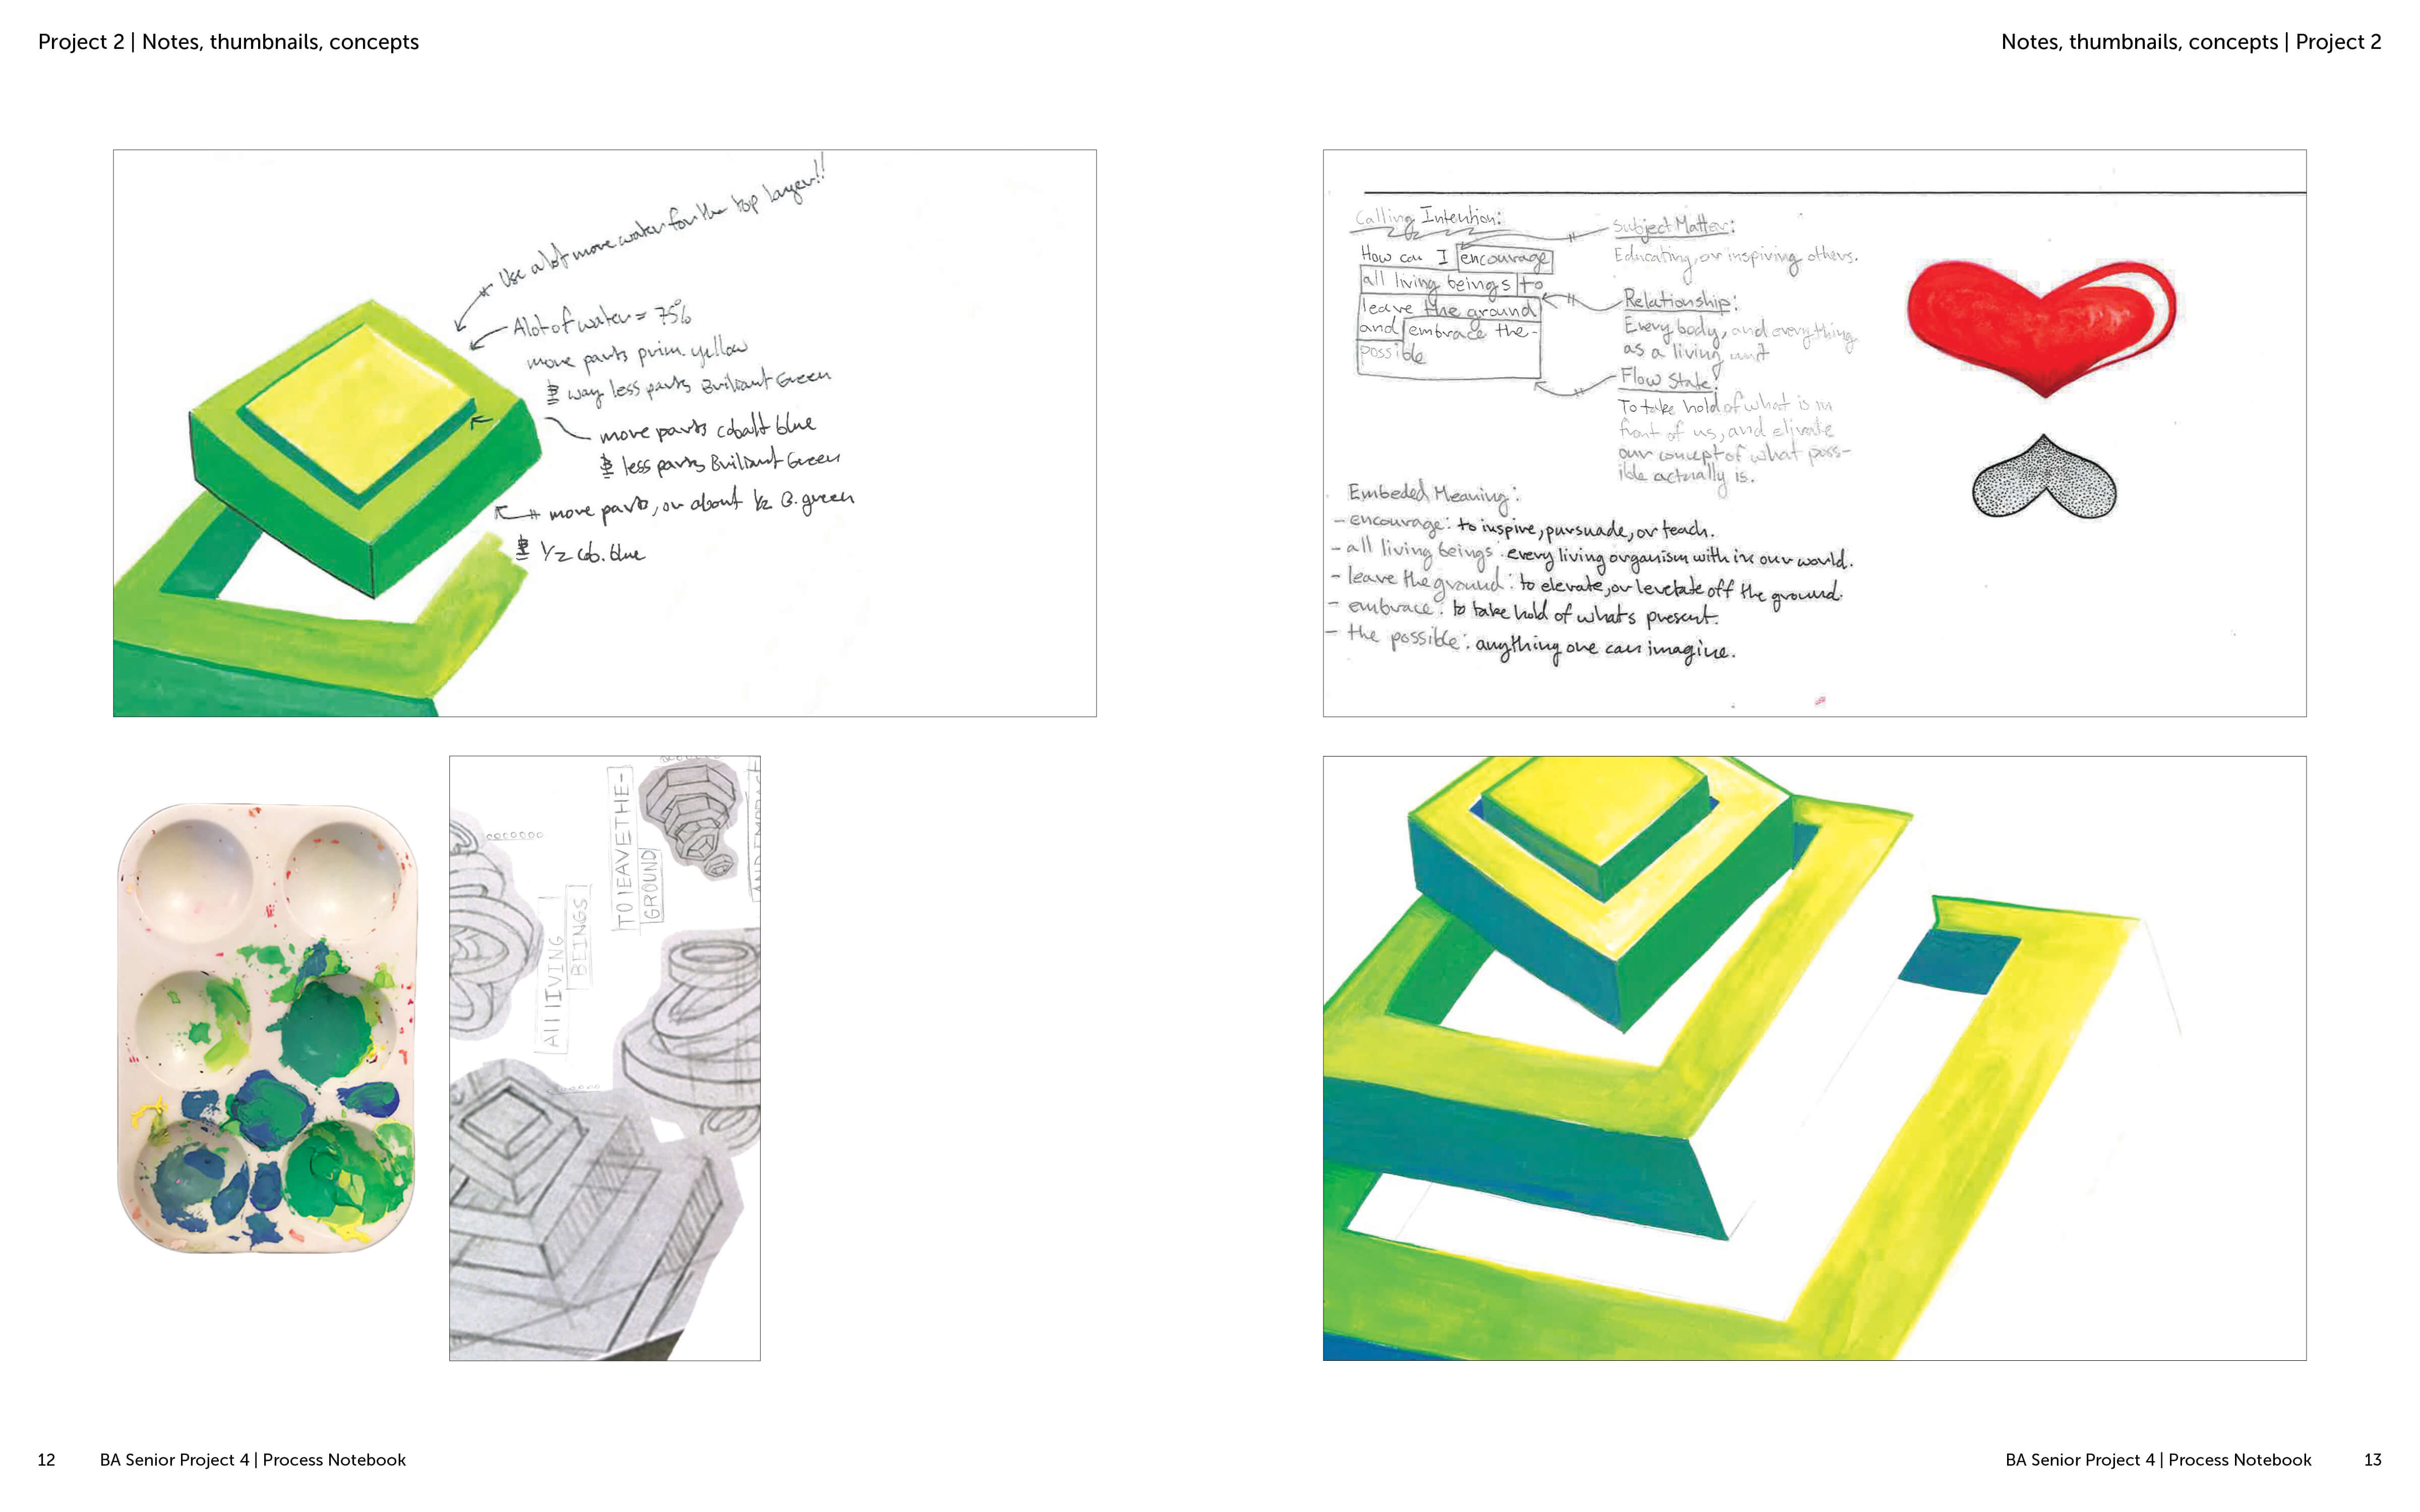 Project 2 | Notes, thumbnails, concepts
Notes, thumbnails, concepts | Project 2
Use a lot more water for the top layer!!
A lot of water = 75%
more parts prim. yellow
& way less parts Briliant Green
more parts cobalt blue
& less parts Briliant Green
more parts, or about 1/2 B. green
& 1/2 cob. blue
TO lEAVE THE-
GROUND
All lIVING
BEINGS
Calling Intention:
How can I encourage
all living beings to
leave the ground
and embrace the-
possible
Subject Matter:
Educating, or inspiring others.
Relationship:
Every body, and everything
as a living unit
Flow State:
To take hold of what is in
front of us, and elivate
our concept of what poss-
ible actually is.
Embeded Meaning:
- encourage: to inspire, pursuade, or teach.
- all living beings: every living organism with in our world.
- leave the ground: to elevate, or levetate off the ground.
- embrace: to take hold of whats present.
- the possible: anything one can imagine.
12 BA Senior Project 4 | Process Notebook
BA Senior Project 4 | Process Notebook 13